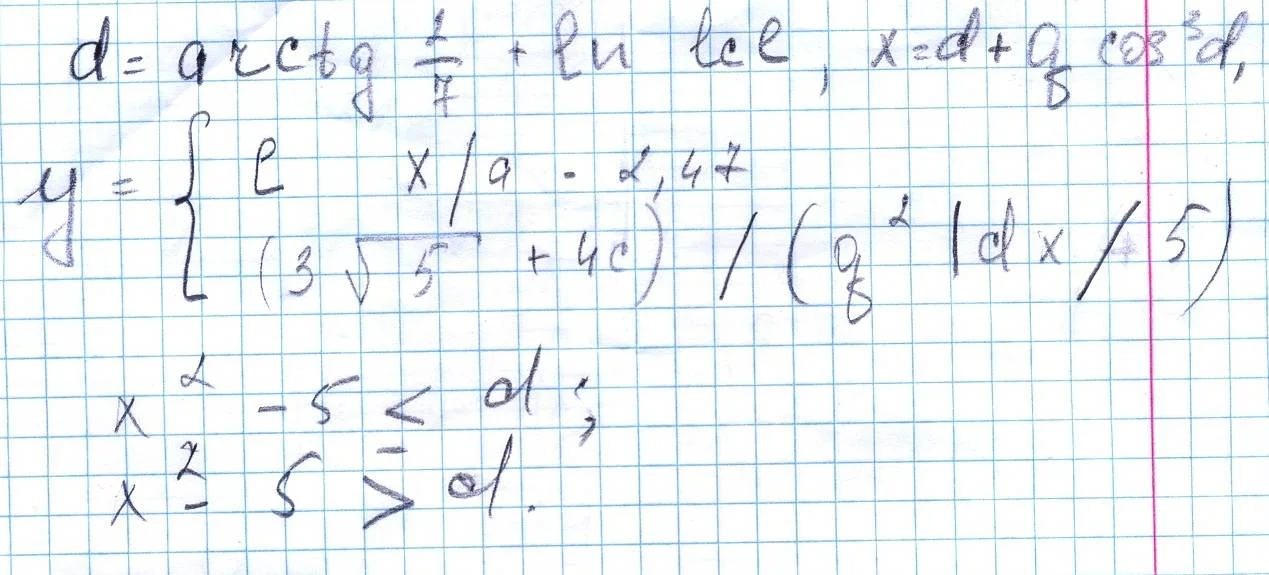 d = arctg 1/7 + ln lcl, x = d + q cos³d,
y = { e x/a - 2,47
(3 √5 + 4c) / (q² | d x / 5)
x² - 5 ≤ d;
x² - 5 > d.